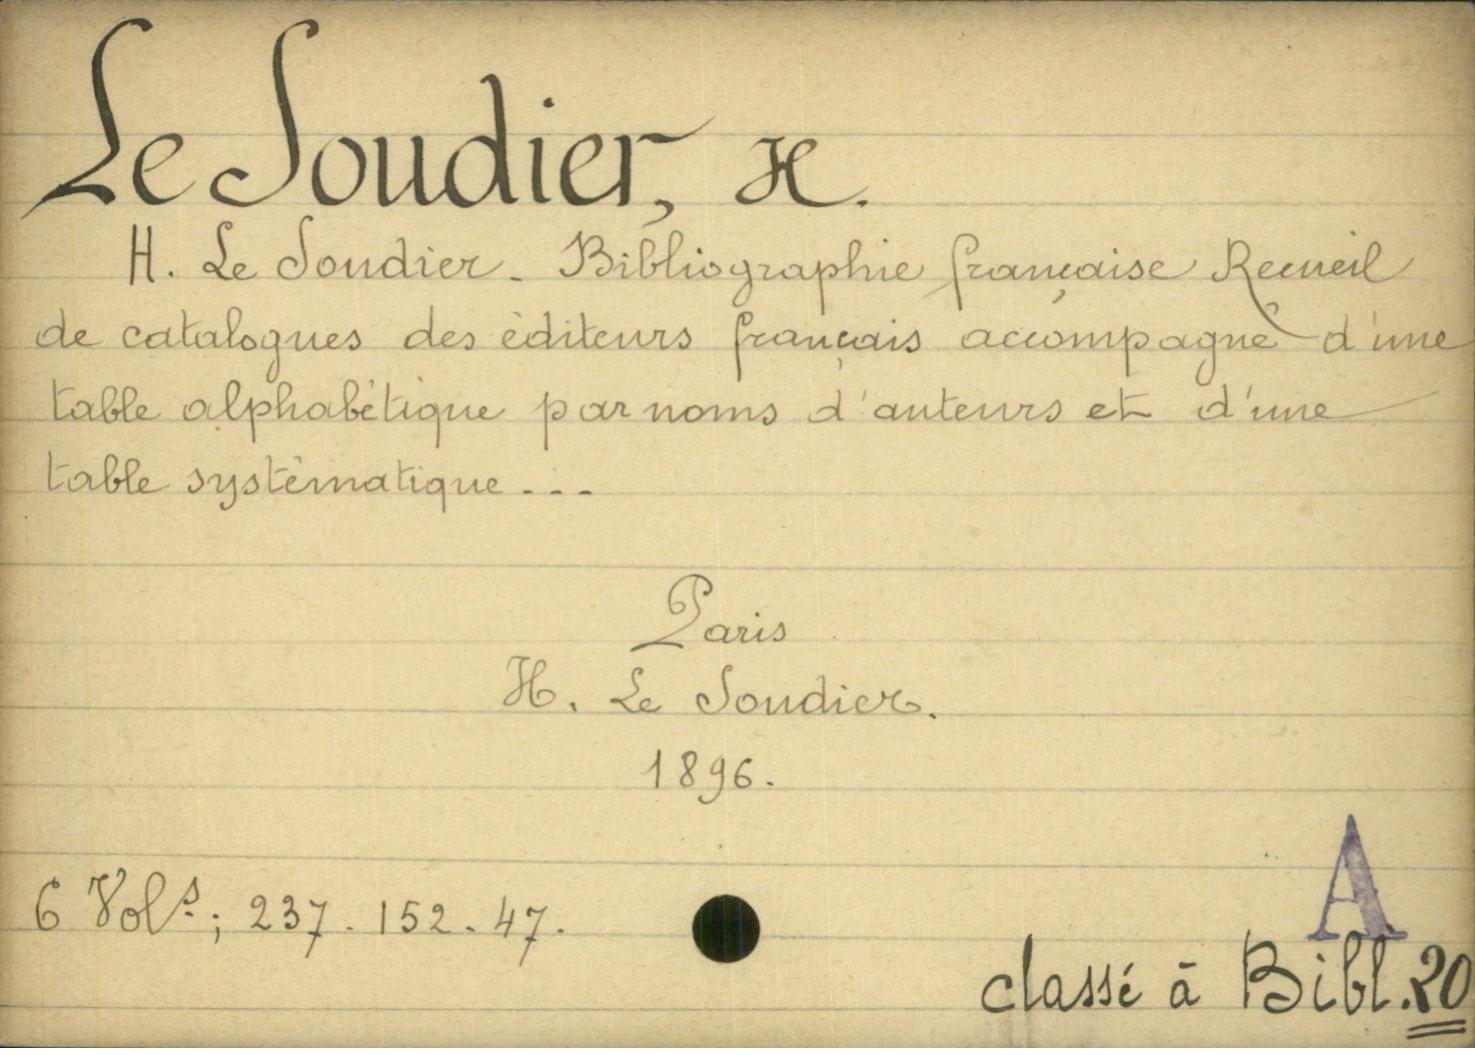 Le Soudier, H.
H. Le Soudier - Bibliographie française Recueil
de catalogues des éditeurs français accompagné d'une
table alphabétique par noms d'auteurs et d'une
table systématique ...
Paris
H. Le Soudier.
1896.
6 Vols.; 237. 152. 47.
A
classé à Bibl. 20